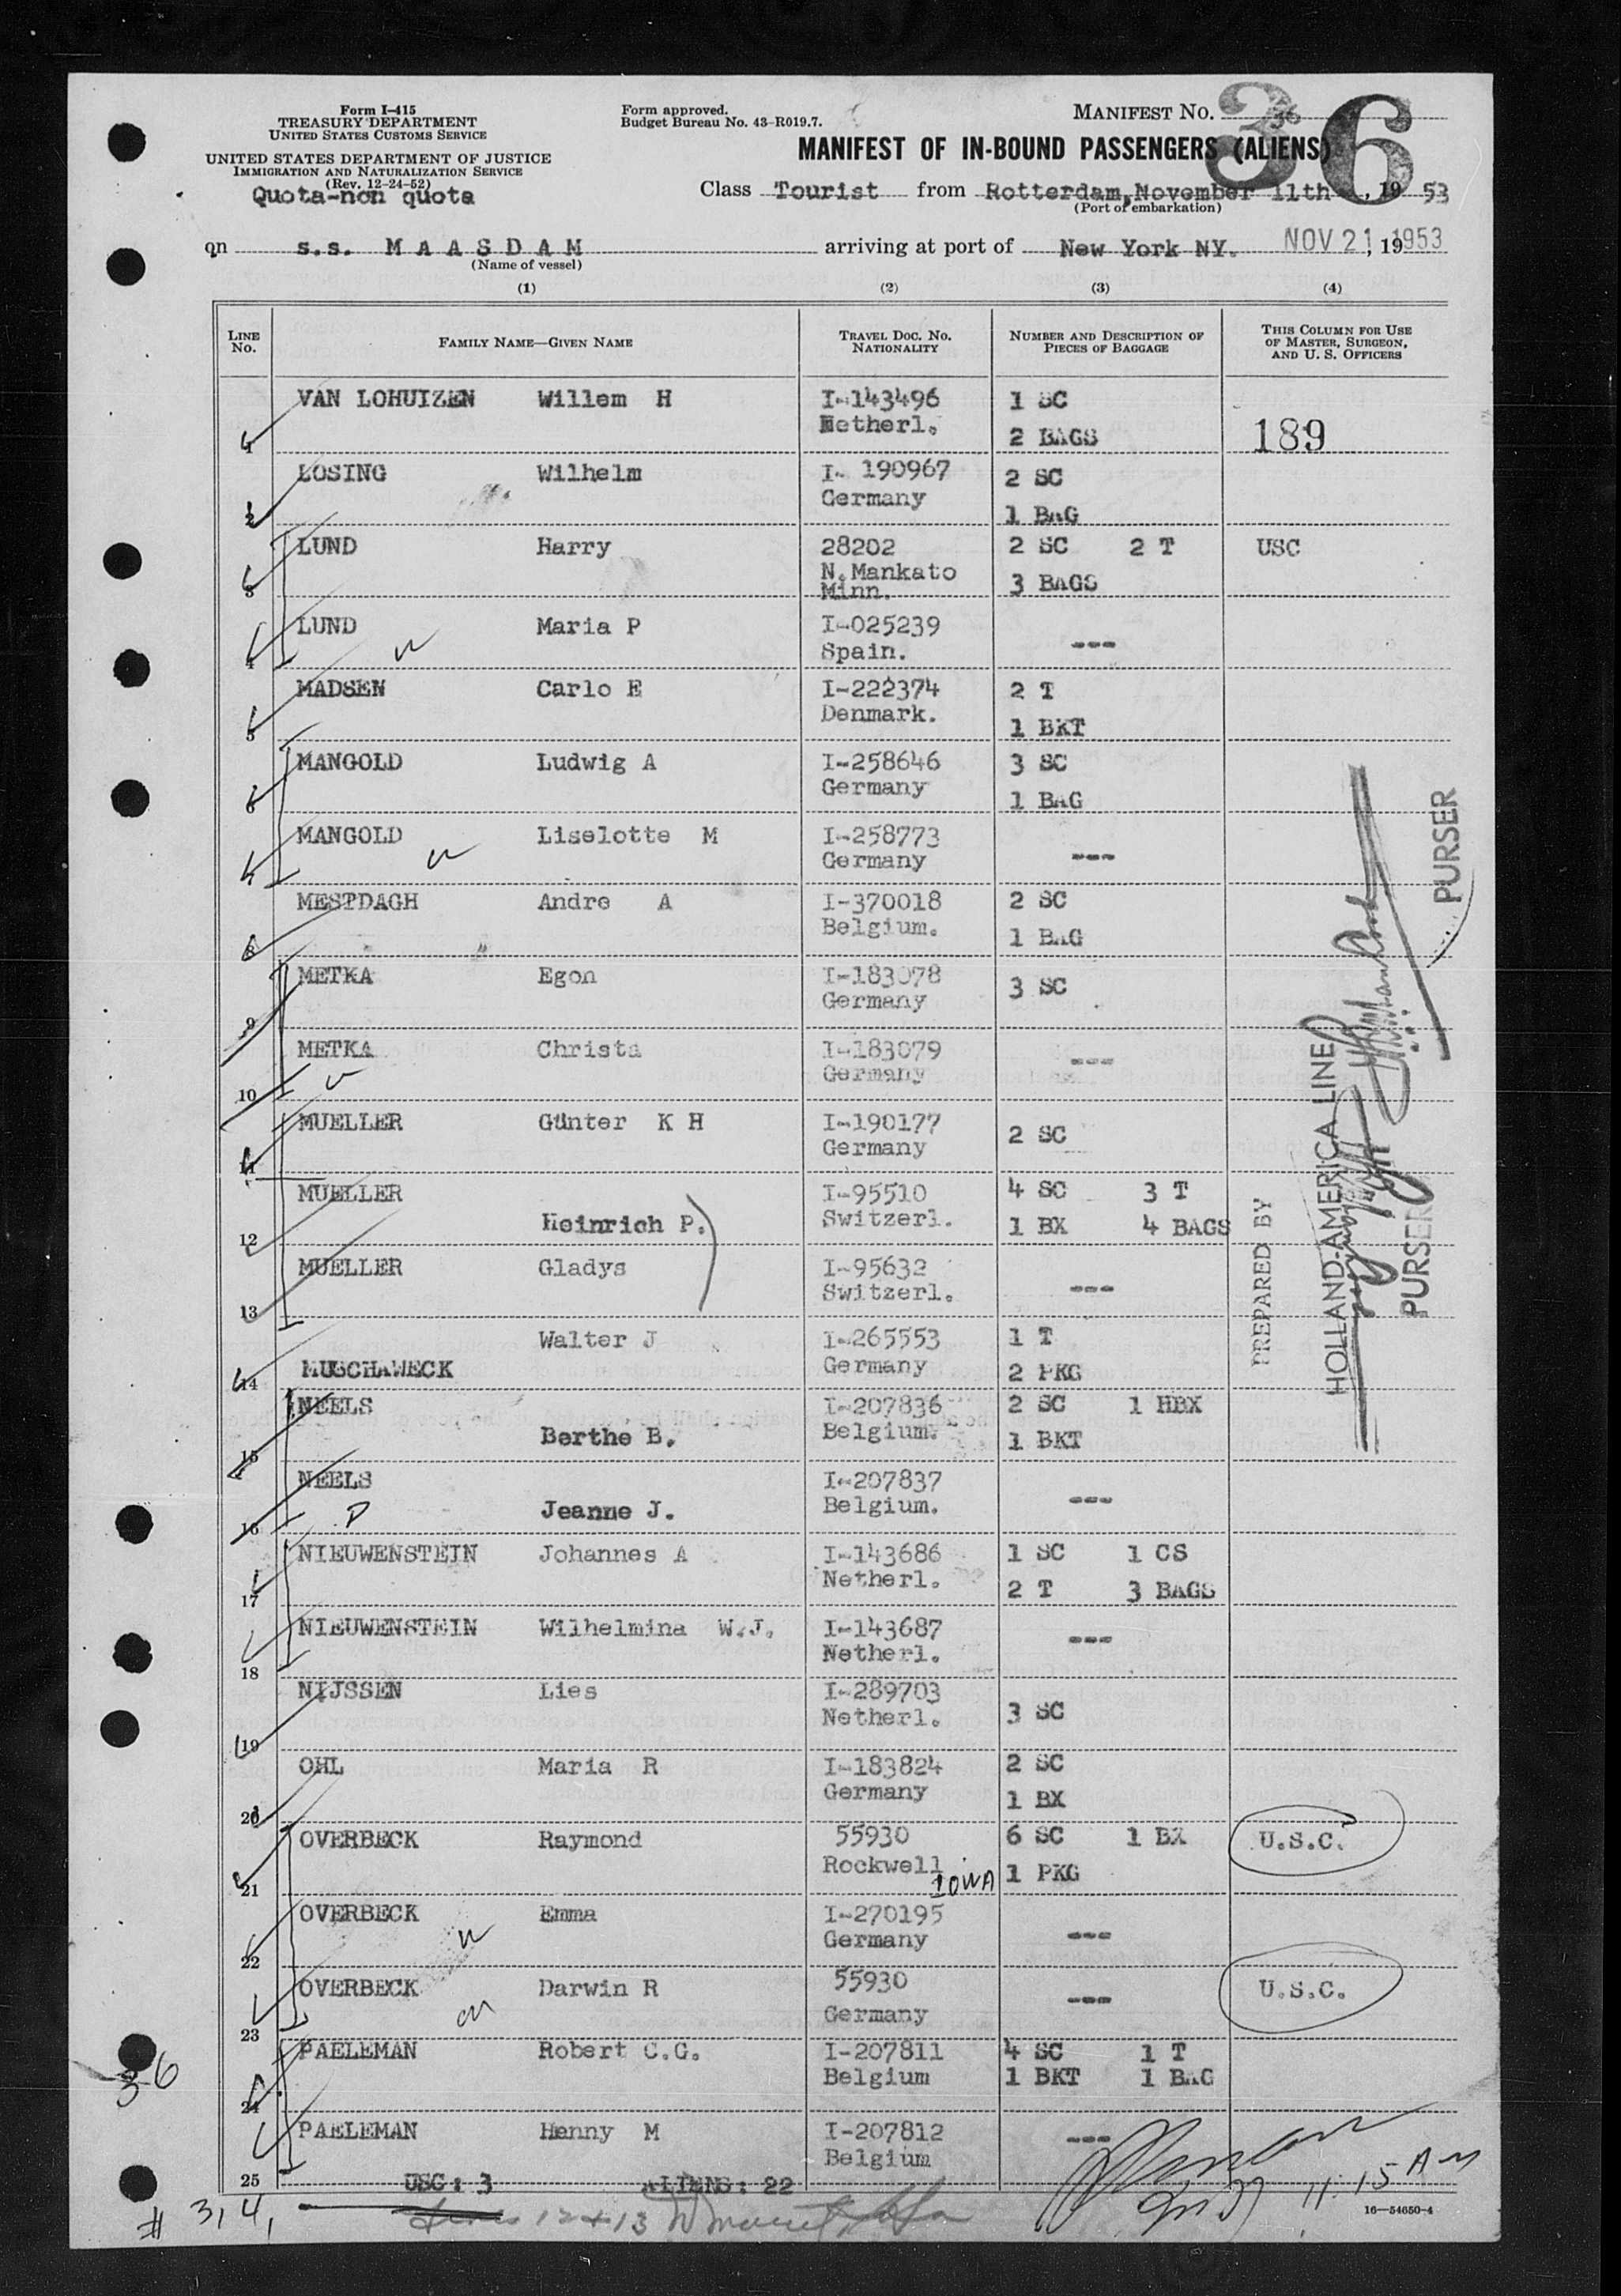 Form I-415
TREASURY DEPARTMENT
UNITED STATES CUSTOMS SERVICE
UNITED STATES DEPARTMENT OF JUSTICE
IMMIGRATION AND NATURALIZATION SERVICE
(Rev. 12-24-52)
Quota-non quota
Form approved.
Budget Bureau No. 43-R019.7.
MANIFEST No. 36
36
MANIFEST OF IN-BOUND PASSENGERS (ALIENS)
Class Tourist from Rotterdam, November 11th, 19 53
(Port of embarkation)
on s.s. M A A S D A M arriving at port of New York NY. NOV 21, 19 1953
(Name of vessel)
(1) (2) (3) (4)
LINE No. FAMILY NAME—GIVEN NAME TRAVEL DOC. NO. NATIONALITY NUMBER AND DESCRIPTION OF PIECES OF BAGGAGE THIS COLUMN FOR USE OF MASTER, SURGEON, AND U. S. OFFICERS
VAN LOHUIZEN Willem H I-143496 1 SC
1 Netherl. 2 BAGS 189
LOSING Wilhelm I- 190967 2 SC
2 Germany 1 BAG
LUND Harry 28202 2 SC 2 T USC
3 N.Mankato Minn. 3 BAGS
LUND Maria P I-025239
4 Spain. ---
MADSEN Carlo E I-222374 2 T
5 Denmark. 1 BKT
MANGOLD Ludwig A I-258646 3 SC
6 Germany 1 BAG
MANGOLD Liselotte M I-258773
7 Germany ---
MESTDAGH Andre A I-370018 2 SC
8 Belgium. 1 BAG
METKA Egon I-183078 3 SC
9 Germany
METKA Christa I-183079 ---
10 Germany
MUELLER Günter K H I-190177 2 SC
11 Germany
MUELLER I-95510 4 SC 3 T
12 Heinrich P. Switzerl. 1 BX 4 BAGS
MUELLER Gladys I-95632
13 Switzerl. ---
Walter J I-265553 1 T
14 MUSCHAWECK Germany 2 PKG
NEELS I-207836 2 SC 1 HBX
15 Berthe B. Belgium. 1 BKT
NEELS I-207837
16 Jeanne J. Belgium. ---
NIEUWENSTEIN Johannes A I-143686 1 SC 1 CS
17 Netherl. 2 T 3 BAGS
NIEUWENSTEIN Wilhelmina W.J. I-143687
18 Netherl. ---
NIJSSEN Lies I-289703
19 Netherl. 3 SC
OHL Maria R I-183824 2 SC
20 Germany 1 BX
OVERBECK Raymond 55930 6 SC 1 BX U.S.C.
21 Rockwell IOWA 1 PKG
OVERBECK Emma I-270195
22 Germany ---
OVERBECK Darwin R 55930 U.S.C.
23 Germany ---
PAELEMAN Robert C.G. I-207811 4 SC 1 T
24 Belgium 1 BKT 1 BAG
PAELEMAN Henny M I-207812
25 Belgium ---
USC: 3 ALIENS: 22
PREPARED BY
HOLLAND-AMERICA LINE
PURSER
PURSER
36
# 3, 4,
Lines 12 + 13
11:15 AM
16—54650-4